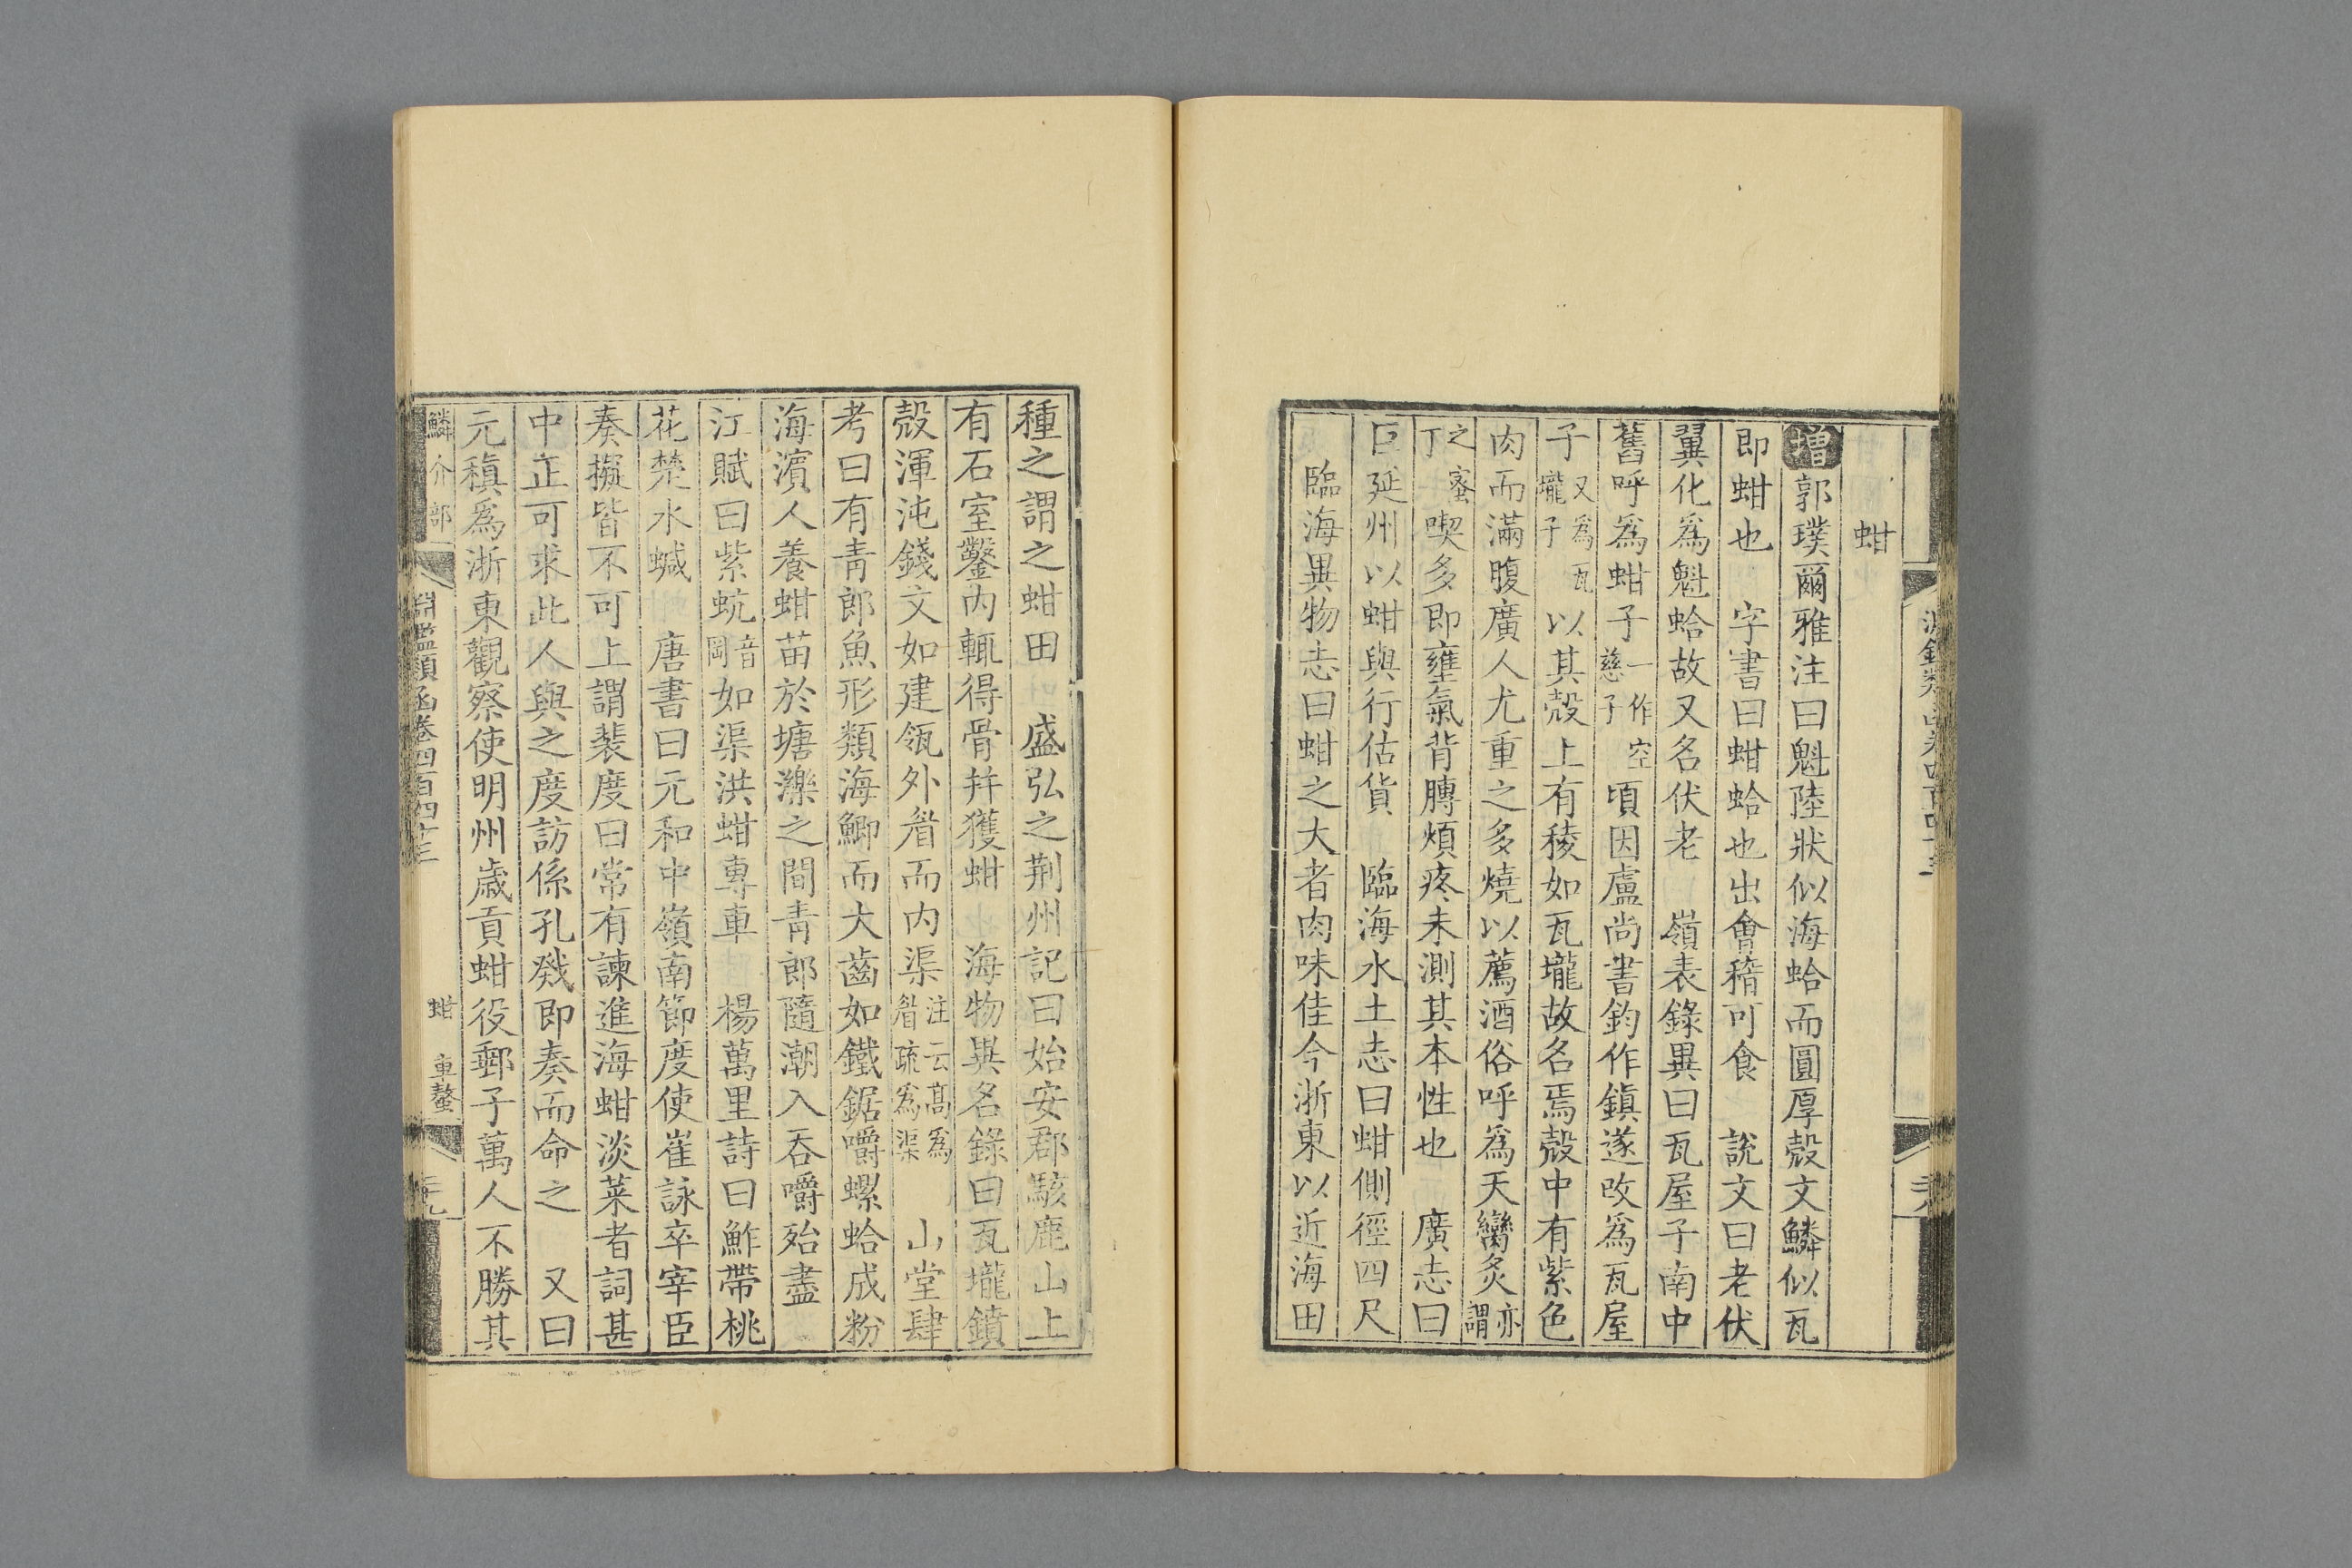 蚶
增郭璞爾雅注曰魁陸狀似海蛤而圓厚殼文鱗似瓦
即蚶也　字書曰蚶蛤也出會稽可食　說文曰老伏
翼化爲魁蛤故又名伏老　嶺表錄異曰瓦屋子南中
舊呼爲蚶子一作空慈子頃因盧尚書鈞作鎮遂改爲瓦屋
子又爲瓦壠子以其殼上有稜如瓦壠故名焉殼中有紫色
肉而滿腹廣人尤重之多燒以薦酒俗呼爲天臠炙亦謂
之蜜丁喫多即壅氣背膊煩疼未測其本性也　廣志曰
巨延州以蚶與行估貨　臨海水土志曰蚶側徑四尺
臨海異物志曰蚶之大者肉味佳今浙東以近海田
種之謂之蚶田　盛弘之荆州記曰始安郡駭鹿山上
有石室鑿內輒得骨并獲蚶　海物異名錄曰瓦壠鐼
殼渾沌錢文如建瓴外眉而內渠注云高爲眉疏爲渠　山堂肆
考曰有青郎魚形類海鯽而大齒如鐵鋸嚼螺蛤成粉
海濱人養蚶苗於塘濼之間青郎隨潮入吞嚼殆盡
江賦曰紫蚢音岡如渠洪蚶專車　楊萬里詩曰鮓帶桃
花楚水鹹　唐書曰元和中嶺南節度使崔詠卒宰臣
奏擬皆不可上謂裴度曰常有諫進海蚶淡菜者詞甚
中正可求此人與之度訪係孔戣即奏而命之　又曰
元稹爲浙東觀察使明州歲貢蚶役郵子萬人不勝其
鱗介部　淵鑑類函卷四百四十三　蚶　車螯　二十九